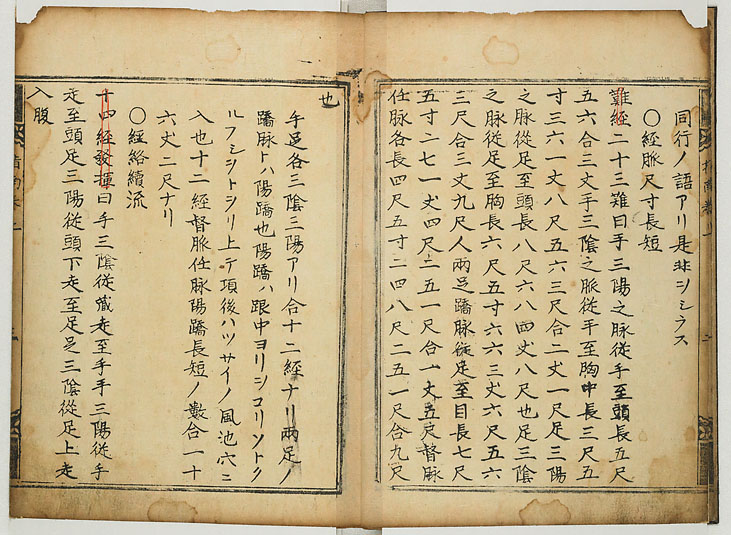 同行ノ語アリ是非シミラス
〇經脈尺寸長短
難經二十三難曰手三陽之脉從手至頭長五尺
五六合三丈手三陰之脉從手至胸中長三尺五
寸三六一丈八尺五六三尺合二丈一尺足三陽
之脉從足至頭長八尺六八四丈八尺也足三陰
之脉從足至胸長六尺五寸六六三丈六尺五六
三尺合三丈九尺人兩足蹻脉從足至目長七尺
五寸二七一丈四尺二五一尺合一丈五尺督脉
任脉各長四尺五寸二四八尺二五一尺合九尺
也
手足各三陰三陽アリ合十二經ナリ兩足ノ
蹻脉トハ陽蹻也陽蹻ハ跟中ヨリシコリソトク
ルフミシトシリ上テ項後ハツサイノ風池穴ニ
入也十二經督脈任脉陽蹻長短ノ數合一十
六丈二尺ナリ
〇經絡續流
十四經發揮曰手三陰從藏走至手手三陽從手
走至頭足三陽從頭下走至足足三陰從足上走
入腹